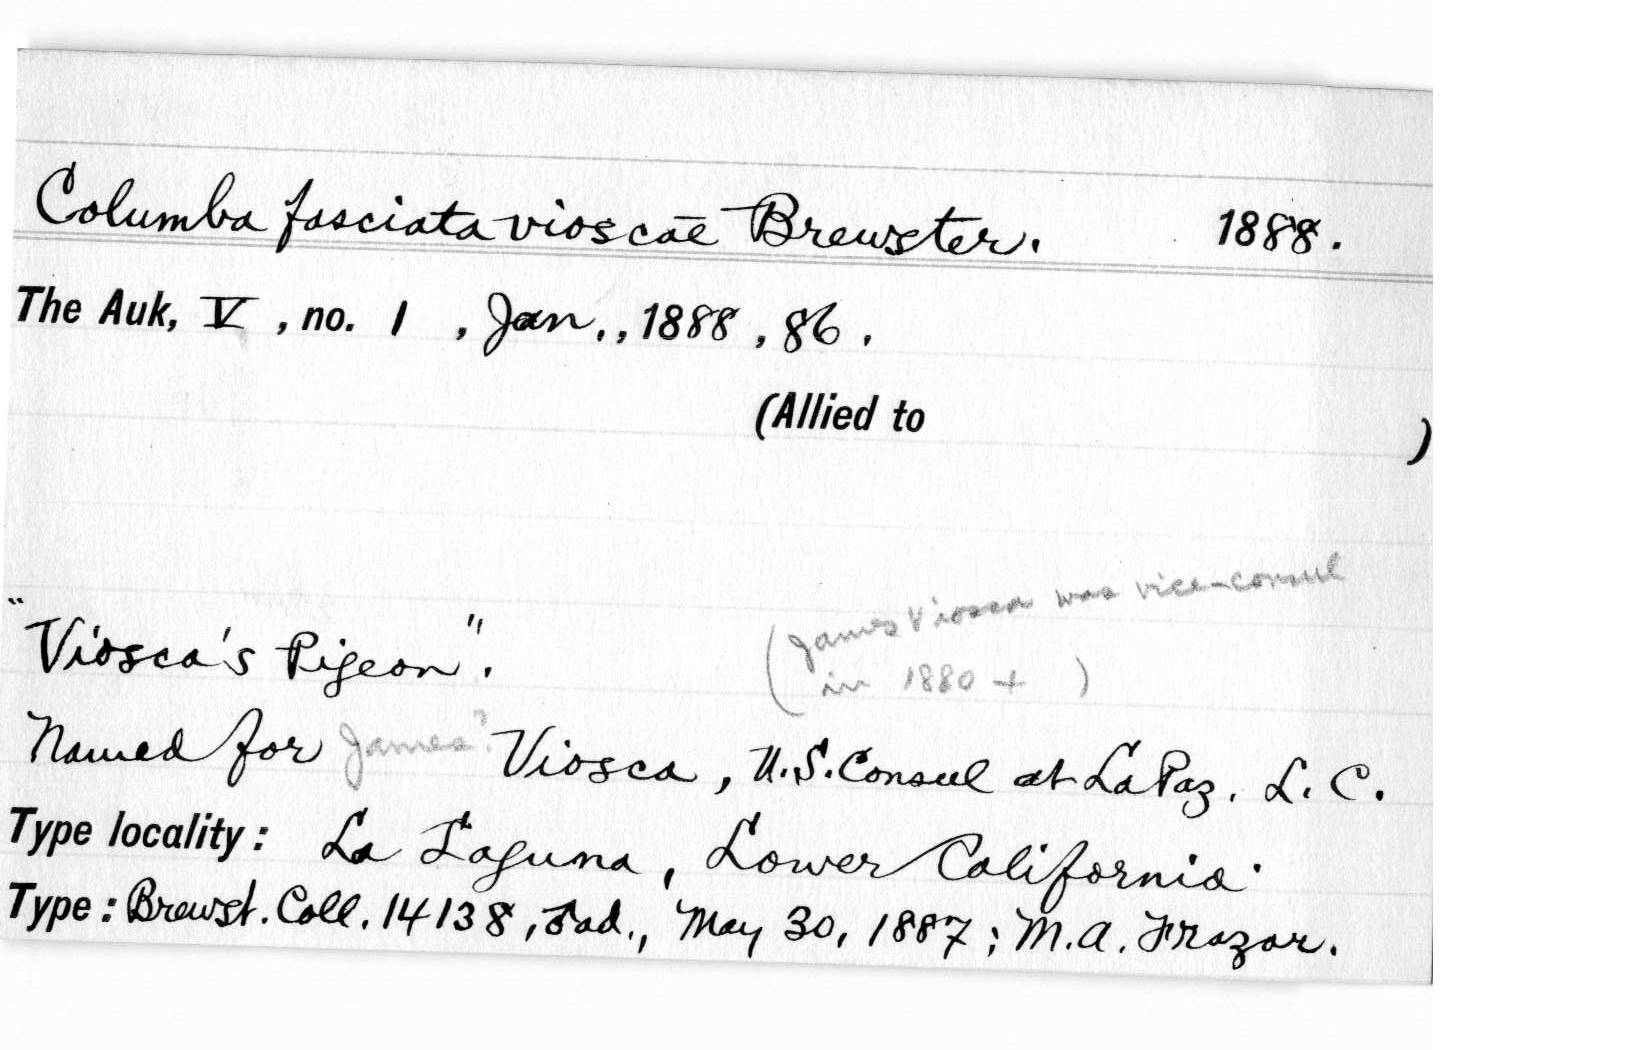 Columba fasciata vioscae Brewster. 1888.
The Auk, V, no. 1, Jan., 1888, 86.
(Allied to )
(James Viosca was vice-consul
in 1880 + )
"Viosca's Pigeon".
Named for James? Viosca, U.S. Consul at La Paz, L. C.
Type locality: La Laguna, Lower California.
Type: Brewst. Coll. 14138, ♂ ad., May 30, 1887; M.A. Frazar.